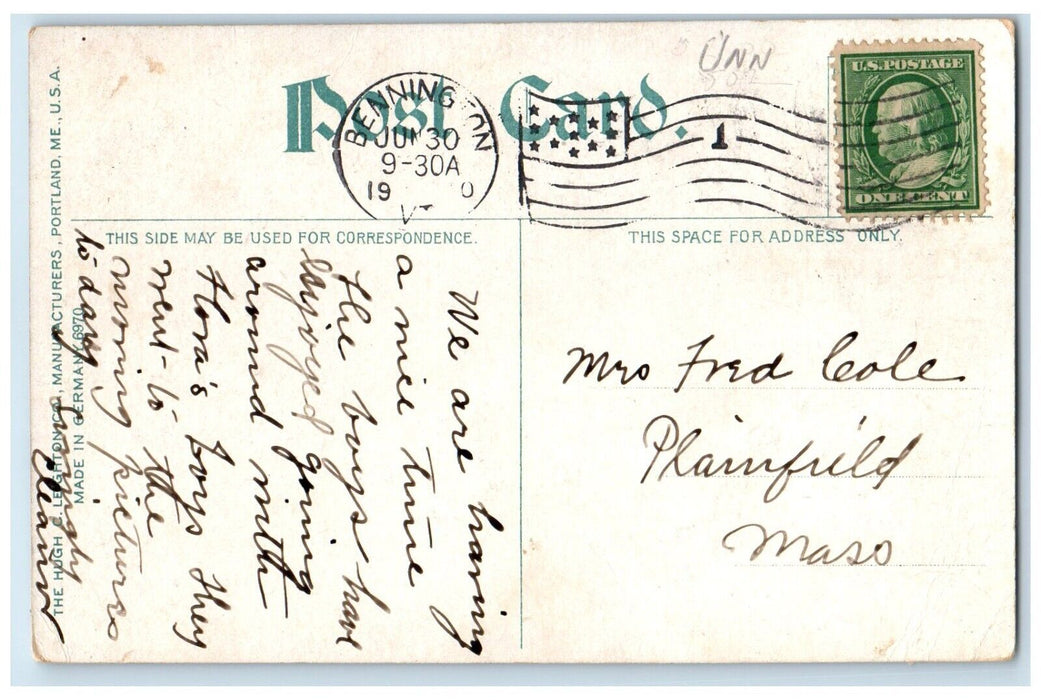 UNN
Post Card.
U.S. POSTAGE
ONE CENT
BENNINGTON
JUN 30
9-30A
19 0
VT
1
THIS SIDE MAY BE USED FOR CORRESPONDENCE.
THIS SPACE FOR ADDRESS ONLY.
We are having
a nice time
the boys have
going
around with
Flora's boys they
went to the
moving pictures
to-day
Mrs Fred Cole
Plainfield
Mass
THE HUGH C. LEIGHTON CO., MANUFACTURERS, PORTLAND, ME., U.S.A.
MADE IN GERMANY 6970